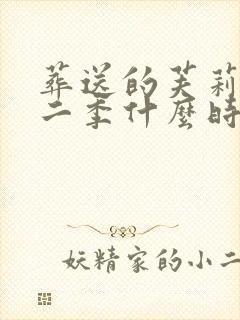 葬送的芙莉
二季什麼時
妖精家的小二